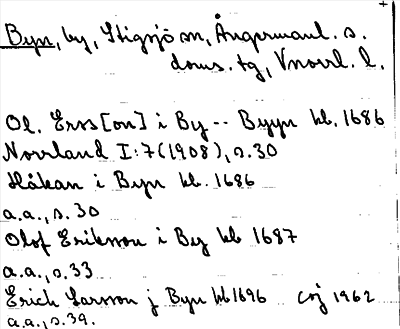 Byn, by, Stigsjö sn, Ångermanl. s.
doms. tg, Vnorrl. l.
Ol. Erss[on] i By -- Byyn kb. 1686
Norrland I:7 (1908), s. 30
Håkan i Byn kb. 1686
a.a., s. 30
Olof Eriksson i By kb 1687
a.a., s. 33
Erich Larsson j Byn kb 1696 COJ 1962
a.a., s. 39.